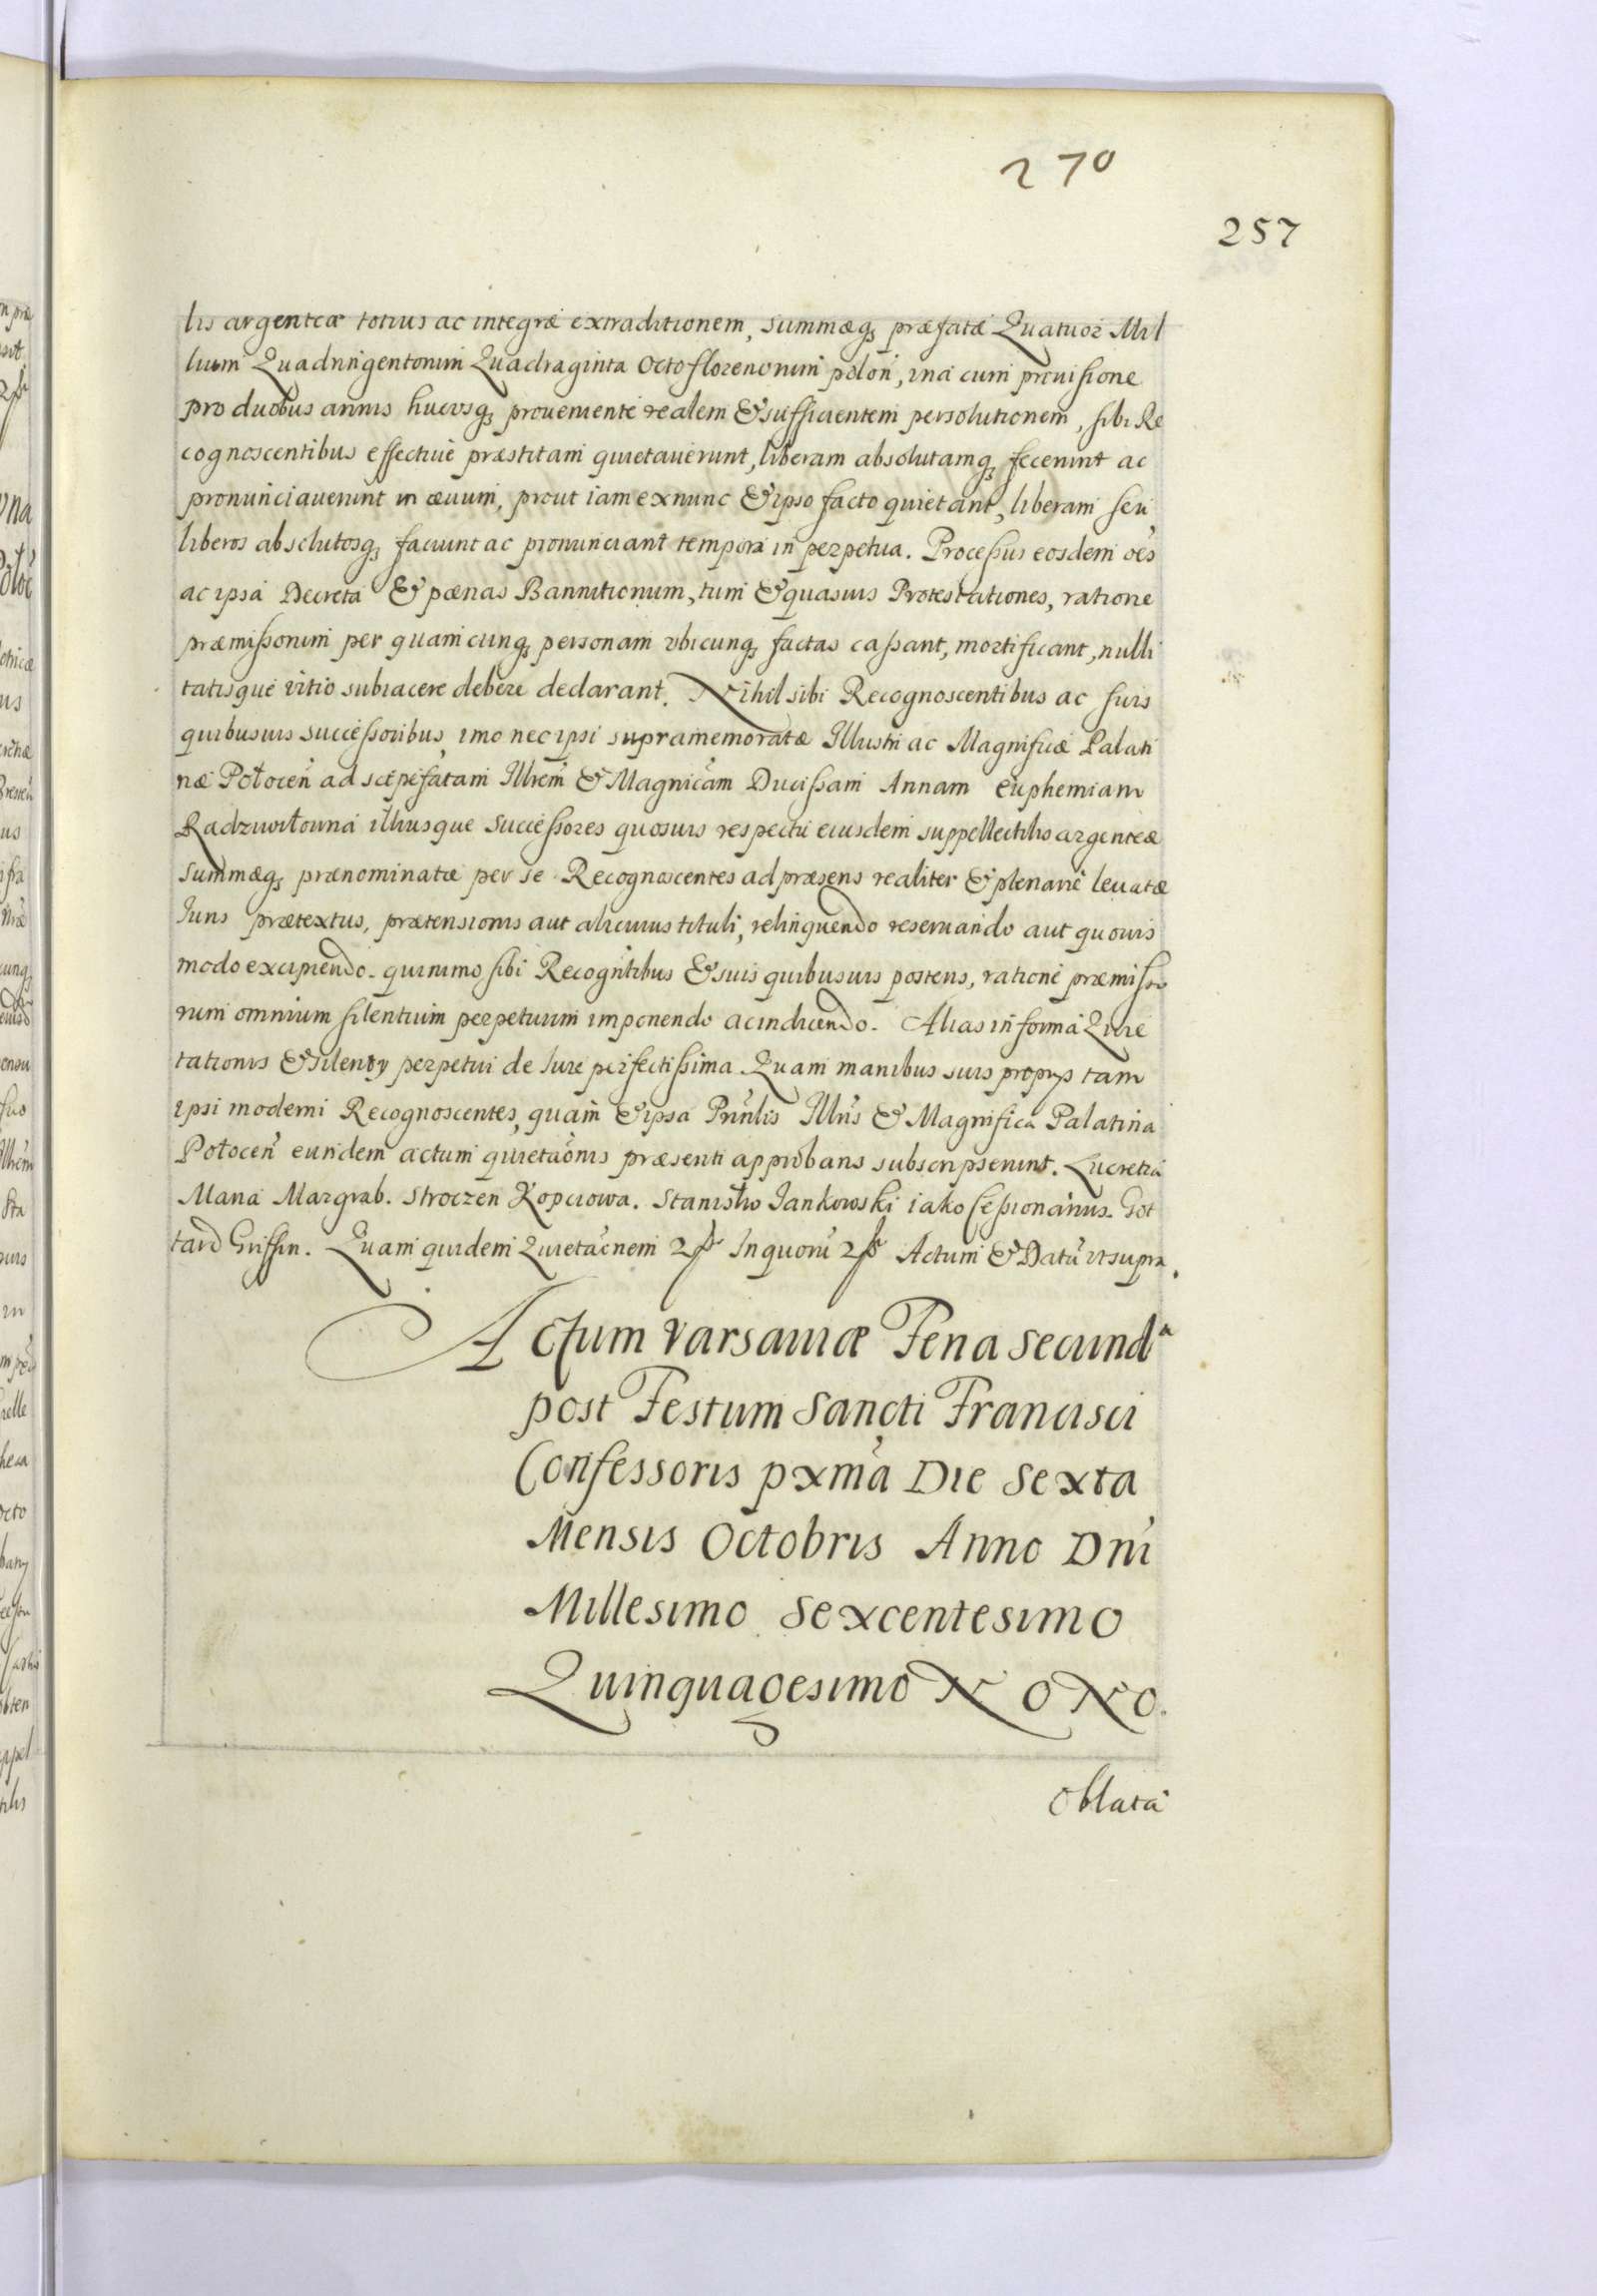 270
257
lis argenteæ totius ac integræ extraditionem, summæq; præfatæ Quatuor Mil
lium Quadringentorum Quadraginta Octo florenorum polon̄, vna cum prouisione
pro duobus annis hucvsq; proueniente realem & sufficientem persolutionem, sibi Re
cognoscentibus effectiue præstitam quietauerunt, liberam absolutamq; fecerunt ac
pronunciauerunt in æuum, prout iam ex nunc & ipso facto quietant, liberam seu
liberos absolutosq; faciunt ac pronunciant tempora in perpetua. Processus eosdem oēs
ac ipsa Decreta & pœnas Bannitionum, tum & quasuis Protestationes, ratione
præmissorum per quamcunq; personam vbicunq; factas cassant, mortificant, nulli
tatisque vitio subiacere debere declarant. Nihil sibi Recognoscentibus ac suis
quibusuis successoribus, imo nec ipsi supramemoratæ Illustri ac Magnificæ Palati
næ Połocen̄ ad sæpefatam Illrem̄ & Magnic̄am Ducissam Annam Euphemiam
Radziwiłowna illiusque Successores quosuis respectu eiusdem suppellectilis argenteæ
summæq; prænominatæ per se Recognoscentes ad præsens realiter & plenarie leuatæ
Iuris prætextus, prætensionis aut alicuius tituli, relinquendo reseruando aut quouis
modo excipiendo. quinimo sibi Recogn̄tibus & suis quibusuis posteris, ratione præmisso
rum omnium silentium perpetuum imponendo ac indicendo. Alias in forma Quie
tationis & silentÿ perpetui de Iure perfectissima. Quam manibus suis proprÿs tam
ipsi moderni Recognoscentes, quam & ipsa Prn̄lis Illrīs & Magnifica Palatina
Połocen̄ eundem actum quietaōnis præsenti approbans subscripserunt. Lucretia
Maria Margrab. Stroczen Kopciowa. Stanisław Jankowski iako Cessionarius. Got
tard Griffin. Quam quidem Quietaōnem 2ɟ In quorū 2ɟ Actum & Datū vt supra.
Actum Varsauiæ Feria Secunda
post Festum Sancti Francisci
Confessoris pxmā Die Sexta
Mensis Octobris Anno Dn̄i
Millesimo Sexcentesimo
Quinquagesimo NONO.
Oblata